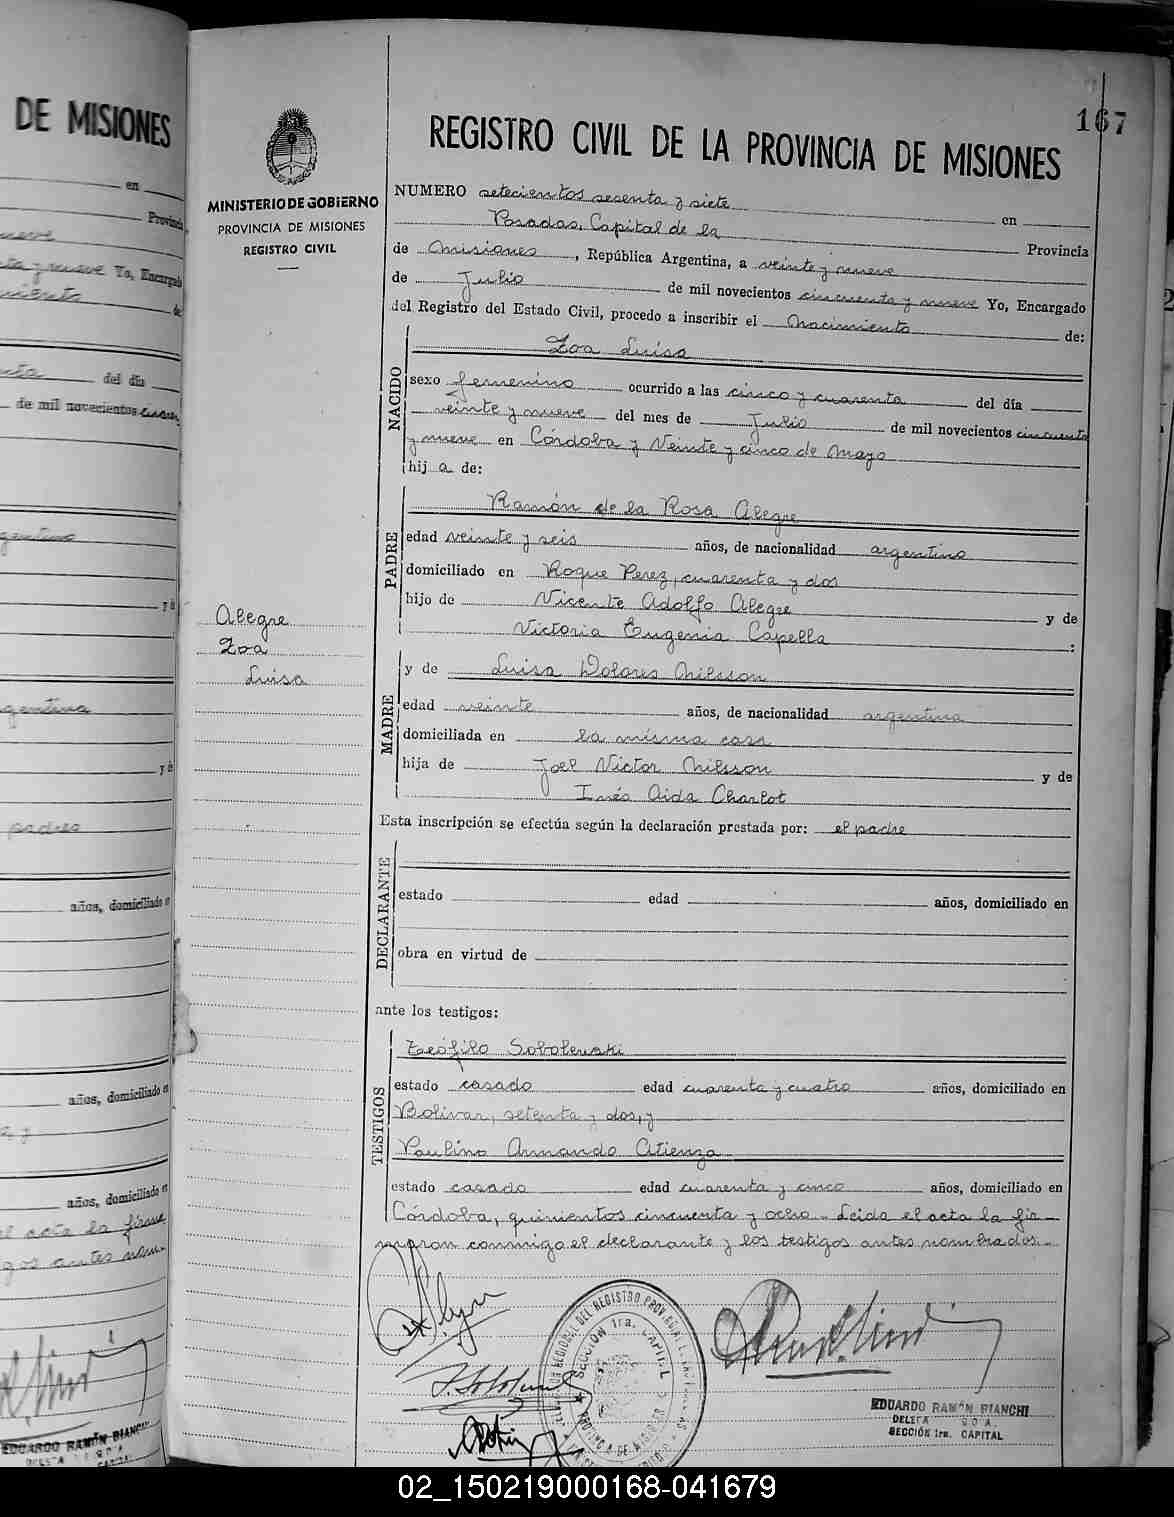 DE MISIONES
en
Provincia
nueve
ta y nueve Yo, Encargado
miento
de
del día
de mil novecientos cincuen
argentino
y de
argentina
y de
padre
años, domiciliado en
años, domiciliado en
años, domiciliado en
el acta la firma
gos antes nom-
EDUARDO RAMÓN BIANCHI
CAPITAL
167
MINISTERIO DE GOBIERNO
PROVINCIA DE MISIONES
REGISTRO CIVIL
Alegre
Zoa
Luisa
REGISTRO CIVIL DE LA PROVINCIA DE MISIONES
NUMERO setecientos sesenta y siete en
Posadas, Capital de la Provincia
de Misiones, República Argentina, a veinte y nueve
de Julio de mil novecientos cincuenta y nueve Yo, Encargado
del Registro del Estado Civil, procedo a inscribir el Nacimiento de:
NACIDO
Zoa Luisa
sexo femenino ocurrido a las cinco y cuarenta del día
veinte y nueve del mes de Julio de mil novecientos cincuenta
y nueve en Córdoba y Veinte y cinco de Mayo
hija de:
PADRE
Ramón de la Rosa Alegre
edad veinte y seis años, de nacionalidad argentino
domiciliado en Roque Perez, cuarenta y dos
hijo de Vicente Adolfo Alegre y de
Victoria Eugenia Capella :
MADRE
y de Luisa Dolores Nilsson
edad veinte años, de nacionalidad argentina
domiciliada en la misma casa
hija de Joel Victor Nilsson y de
Inés Aida Charlot
Esta inscripción se efectúa según la declaración prestada por: el padre
DECLARANTE
estado edad años, domiciliado en
obra en virtud de
ante los testigos:
TESTIGOS
Teófilo Sobolewski
estado casado edad cuarenta y cuatro años, domiciliado en
Bolivar, setenta y dos, y
Paulino Armando Atienza
estado casado edad cuarenta y cinco años, domiciliado en
Córdoba, quinientos cincuenta y ocho - Leida el acta la fir-
maron conmigo el declarante y los testigos antes nombrados.-
SECCIÓN 1ra. CAPITAL
EDUARDO RAMÓN BIANCHI
SECCIÓN 1ra. CAPITAL
02_150219000168-041679